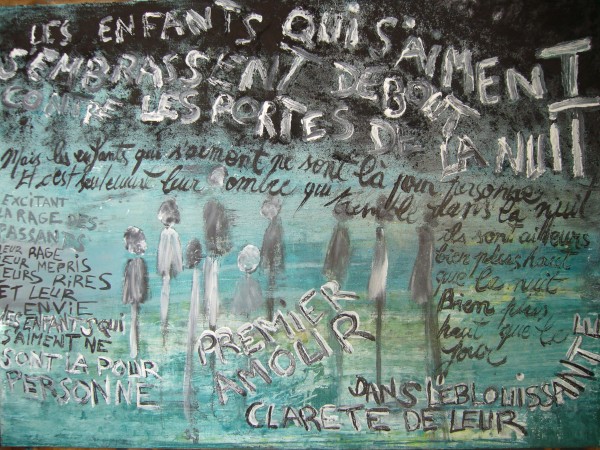 LES ENFANTS QUI S'AIMENT
S'EMBRASSENT DEBOUT
CONTRE LES PORTES DE LA NUIT
Mais les enfants qui s'aiment ne sont là pour personne
Et c'est seulement leur ombre qui tremble dans la nuit
EXCITANT
LA RAGE DES
PASSANTS
LEUR RAGE
LEUR MEPRIS
LEURS RIRES
ET LEUR
ENVIE
LES ENFANTS QUI
S'AIMENT NE
SONT LA POUR
PERSONNE
ils sont ailleurs
bien plus haut
que la nuit
Bien plus
haut que le
jour
DANS L'EBLOUISSANTE
CLARETE DE LEUR
PREMIER
AMOUR